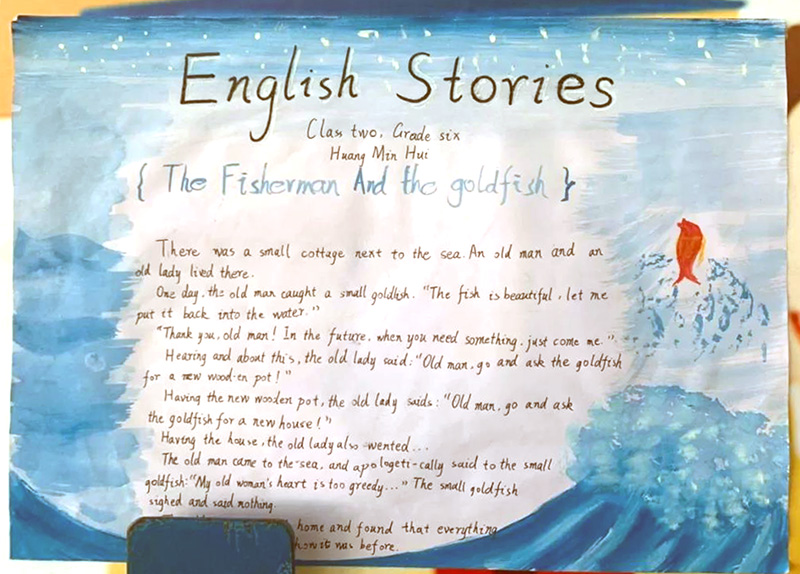 English Stories
Class two, Grade six
Huang Min Hui
{ The Fisherman And the goldfish }
There was a small cottage next to the sea. An old man and an
old lady lived there.
One day, the old man caught a small goldfish. "The fish is beautiful, let me
put it back into the water."
"Thank you, old man! In the future, when you need something, just come me."
Hearing and about this, the old lady said: "Old man, go and ask the goldfish
for a new wood-en pot!"
Having the new wooden pot, the old lady saids: "Old man, go and ask
the goldfish for a new house!"
Having the house, the old lady also wented...
The old man came to the sea, and apologeti-cally said to the small
goldfish: "My old woman's heart is too greedy..." The small goldfish
sighed and said nothing.
home and found that everything
how it was before.